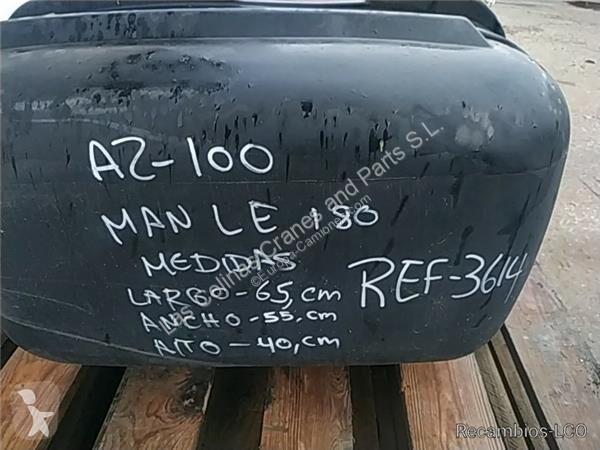 AZ-100
MAN LE 180
MEDIDAS
LARGO-65,cm
ANCHO-55,cm
AñTO-40,cm
REF-3614
Las Salinas Cranes and Parts S.L.
©Europa-Camiones.com
Recambios-LCO